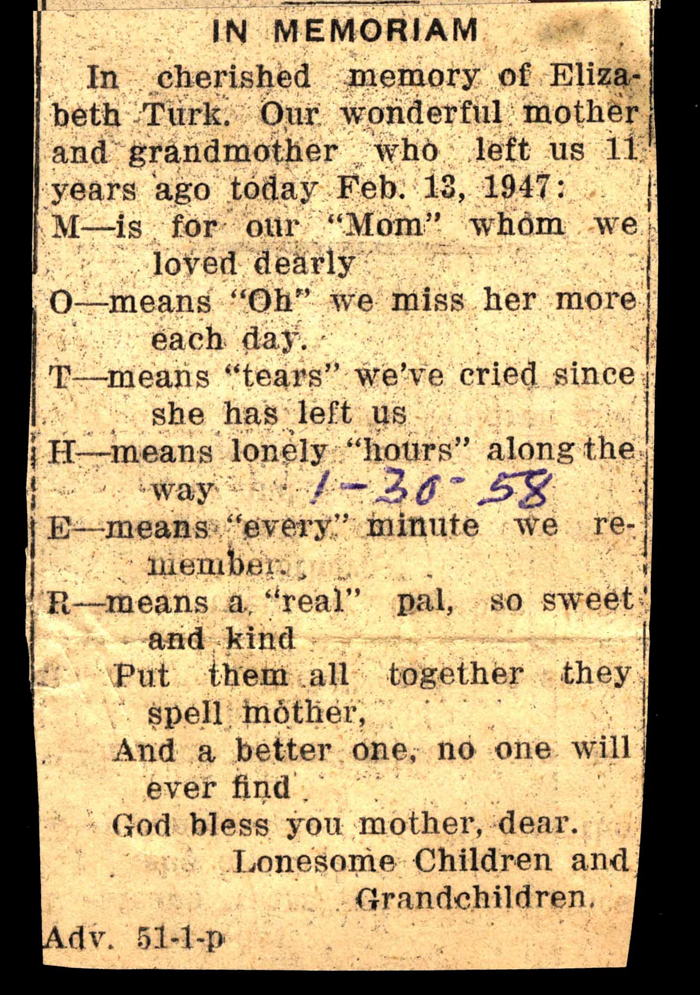 IN MEMORIAM
In cherished memory of Eliza-
beth Turk. Our wonderful mother
and grandmother who left us 11
years ago today Feb. 13, 1947:
M—is for our "Mom" whom we
loved dearly
O—means "Oh" we miss her more
each day.
T—means "tears" we've cried since
she has left us
H—means lonely "hours" along the
way 1-30-58
E—means "every" minute we re-
member.
R—means a "real" pal, so sweet
and kind
Put them all together they
spell mother,
And a better one, no one will
ever find
God bless you mother, dear.
Lonesome Children and
Grandchildren.
Adv. 51-1-p